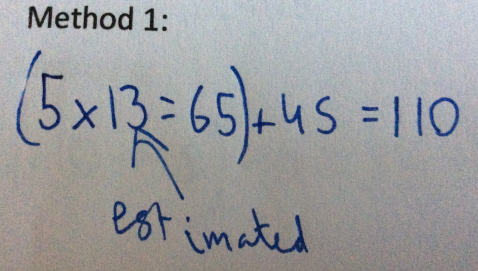 Method 1:
(5x13=65)+45=110
estimated